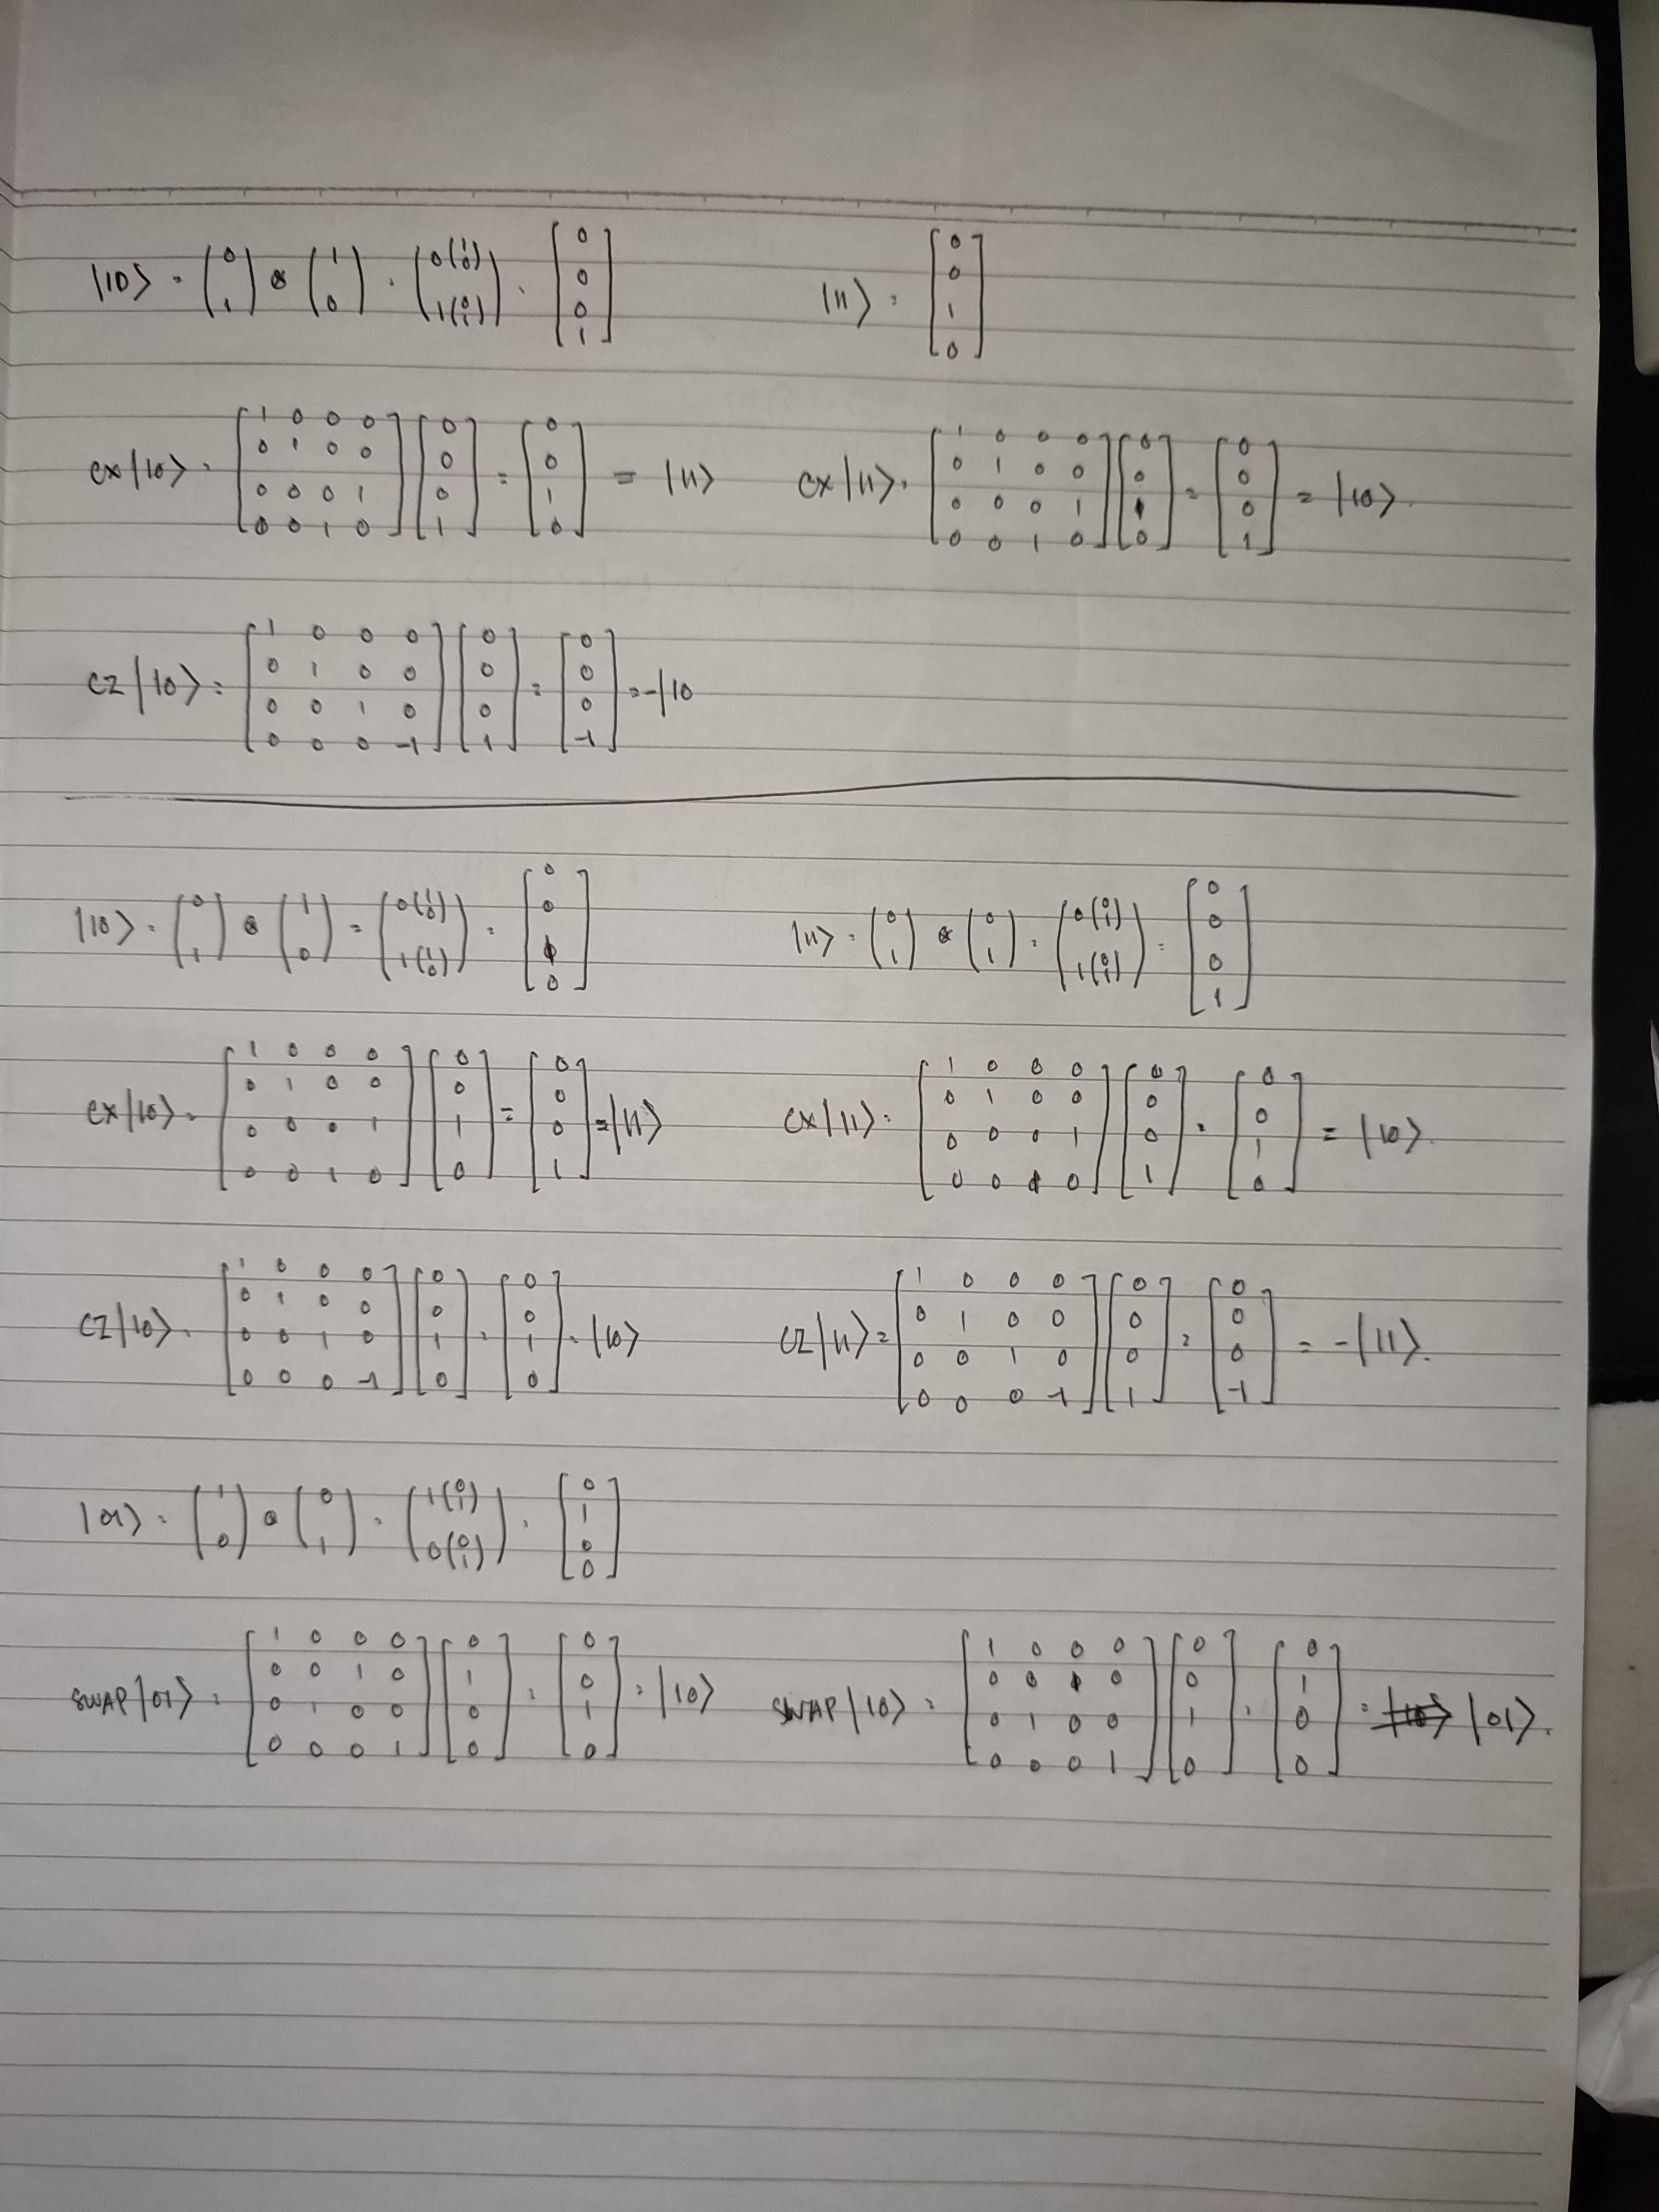 |10> = (0 1) ⊗ (1 0) = (0(1 0) 1(0 1)) = [0 0 0 1] |11> = [0 0 1 0]
CX|10> = [1 0 0 0 0 1 0 0 0 0 0 1 0 0 1 0] [0 0 0 1] = [0 0 1 0] = |11> CX|11> = [1 0 0 0 0 1 0 0 0 0 0 1 0 0 1 0] [0 0 1 0] = [0 0 0 1] = |10>.
CZ|10> = [1 0 0 0 0 1 0 0 0 0 1 0 0 0 0 -1] [0 0 0 1] = [0 0 0 -1] = -|10
|10> = (0 1) ⊗ (1 0) = (0(1 0) 1(1 0)) = [0 0 1 0] |11> = (0 1) ⊗ (0 1) = (0(0 1) 1(0 1)) = [0 0 0 1]
CX|10> = [1 0 0 0 0 1 0 0 0 0 0 1 0 0 1 0] [0 0 1 0] = [0 0 0 1] = |11> CX|11> = [1 0 0 0 0 1 0 0 0 0 0 1 0 0 1 0] [0 0 0 1] = [0 0 1 0] = |10>.
CZ|10> = [1 0 0 0 0 1 0 0 0 0 1 0 0 0 0 -1] [0 0 1 0] = [0 0 1 0] = |10> CZ|11> = [1 0 0 0 0 1 0 0 0 0 1 0 0 0 0 -1] [0 0 0 1] = [0 0 0 -1] = -|11>.
|01> = (1 0) ⊗ (0 1) = (1(0 1) 0(0 1)) = [0 1 0 0]
SWAP|01> = [1 0 0 0 0 0 1 0 0 1 0 0 0 0 0 1] [0 1 0 0] = [0 0 1 0] = |10> SWAP|10> = [1 0 0 0 0 0 1 0 0 1 0 0 0 0 0 1] [0 0 1 0] = [0 1 0 0] = |10> |01>.